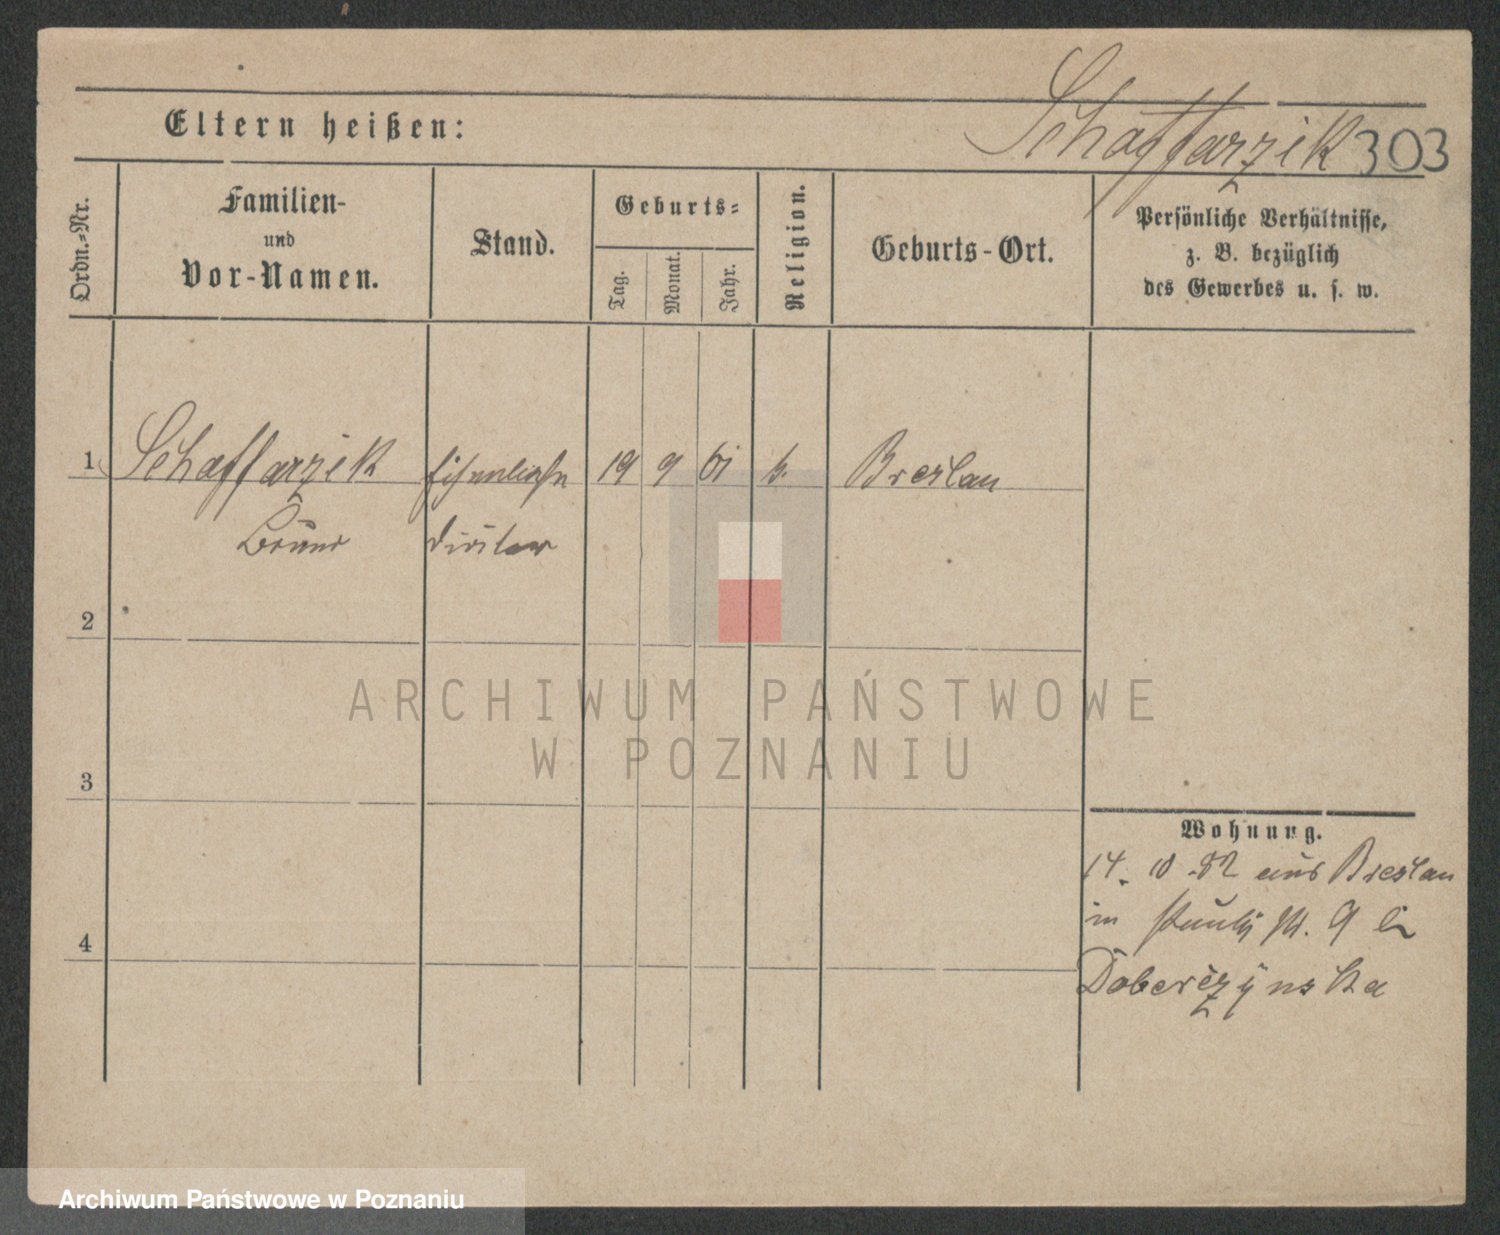 Schaffarzik 303
Eltern heißen:
Ordn.-Nr.
Familien-
und
Vor-Namen.
Stand.
Geburts-
Tag.
Monat.
Jahr.
Religion.
Geburts-Ort.
Persönliche Verhältnisse,
z. B. bezüglich
des Gewerbes u. s. w.
1 Schaffarzik 19 9 61 k. Breslau
Bruno
2
3
4
Wohnung.
14. 10 - 82 aus Breslau
in 9
Doberczynska
ARCHIWUM PAŃSTWOWE
W POZNANIU
Archiwum Państwowe w Poznaniu